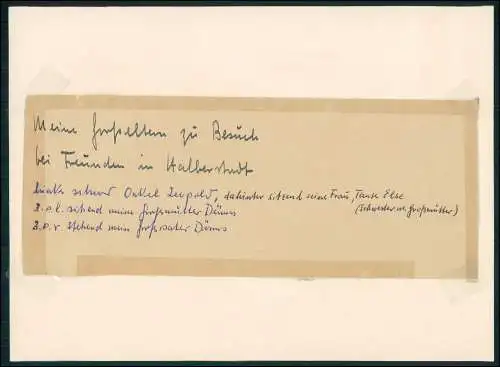 Meine Großeltern zu Besuch
bei Freunden in Halberstadt
links sitzend Onkel Leopold, dahinter sitzend seine Frau, Tante Else
(Schwester m. Großmutter)
2. v. l. stehend meine Großmutter
2. v. r. stehend mein Großvater